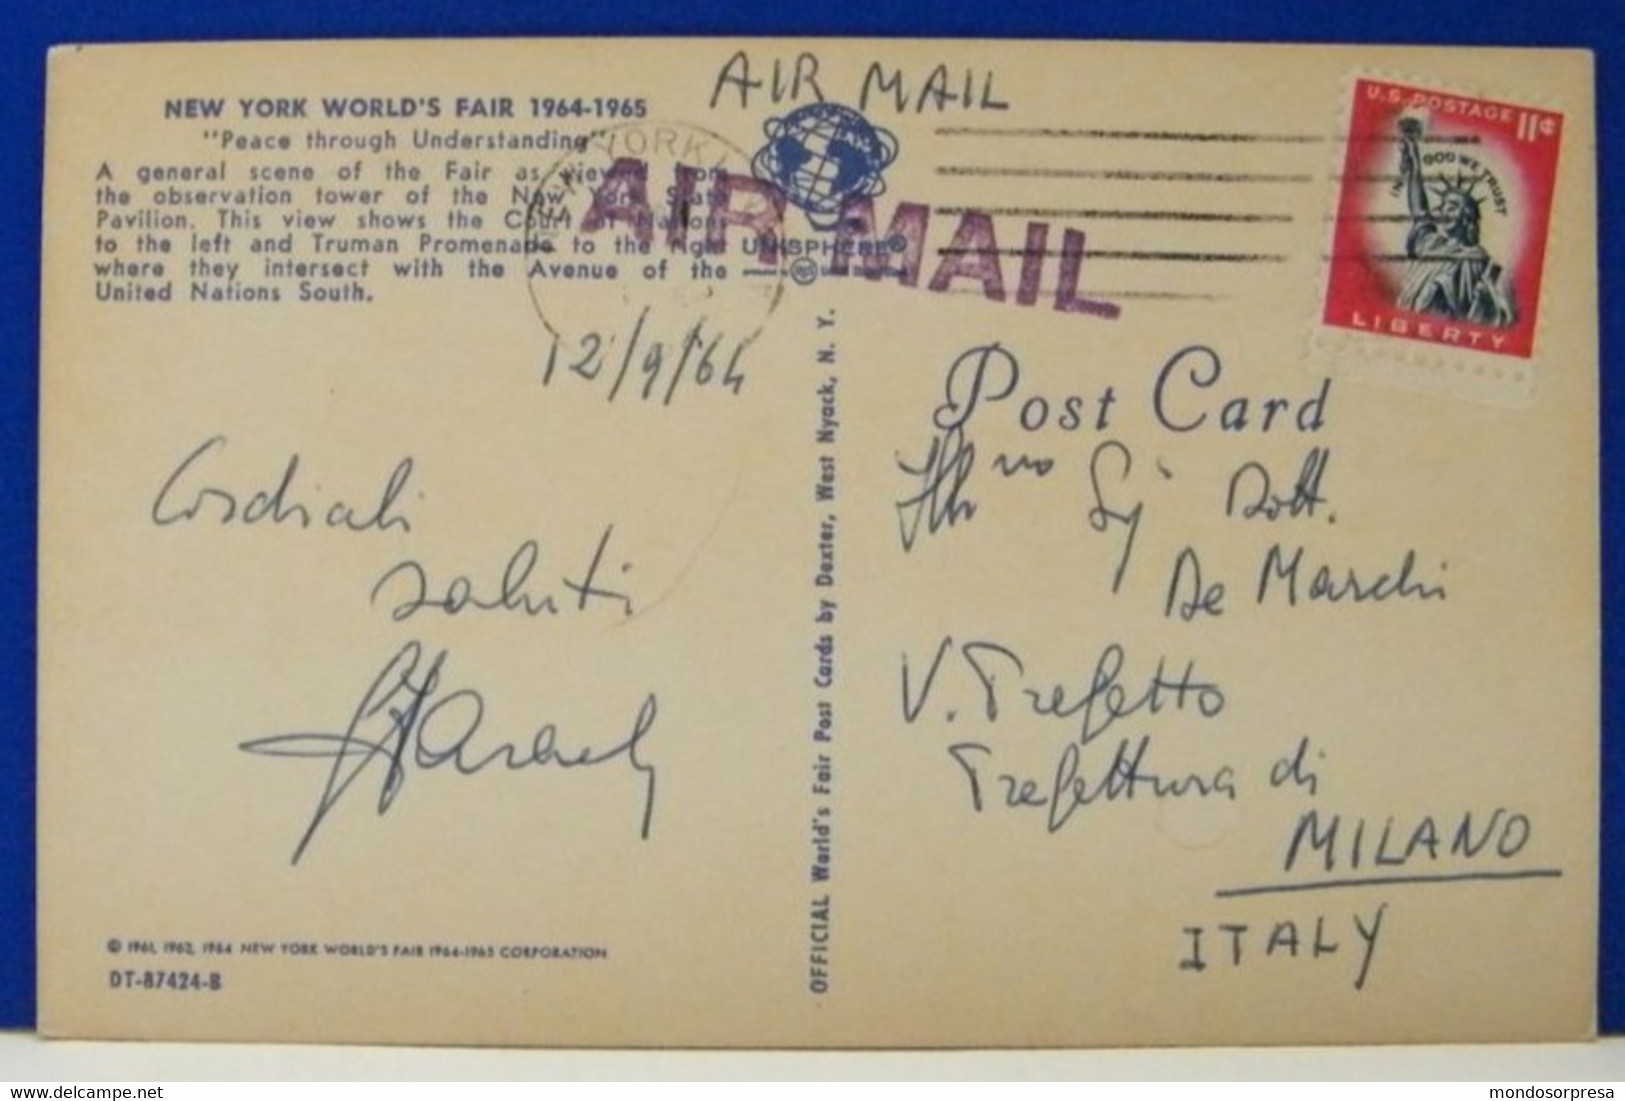 AIR MAIL
NEW YORK WORLD'S FAIR 1964-1965
"Peace through Understanding"
A general scene of the Fair as viewed from
the observation tower of the New York State
Pavilion. This view shows the Court of Nations
to the left and Truman Promenade to the right
where they intersect with the Avenue of the
United Nations South.
YORK
AIR MAIL
UNISPHERE®
U.S. POSTAGE 11¢
IN GOD WE TRUST
LIBERTY
12/9/64
Cordiali
saluti
Post Card
Ill mo Sig Dott.
De Marchi
V. Prefetto
Prefettura di
MILANO
ITALY
OFFICIAL World's Fair Post Cards by Dexter, West Nyack, N. Y.
© 1961, 1962, 1964 NEW YORK WORLD'S FAIR 1964-1965 CORPORATION
DT-87424-B
mondosorpresa